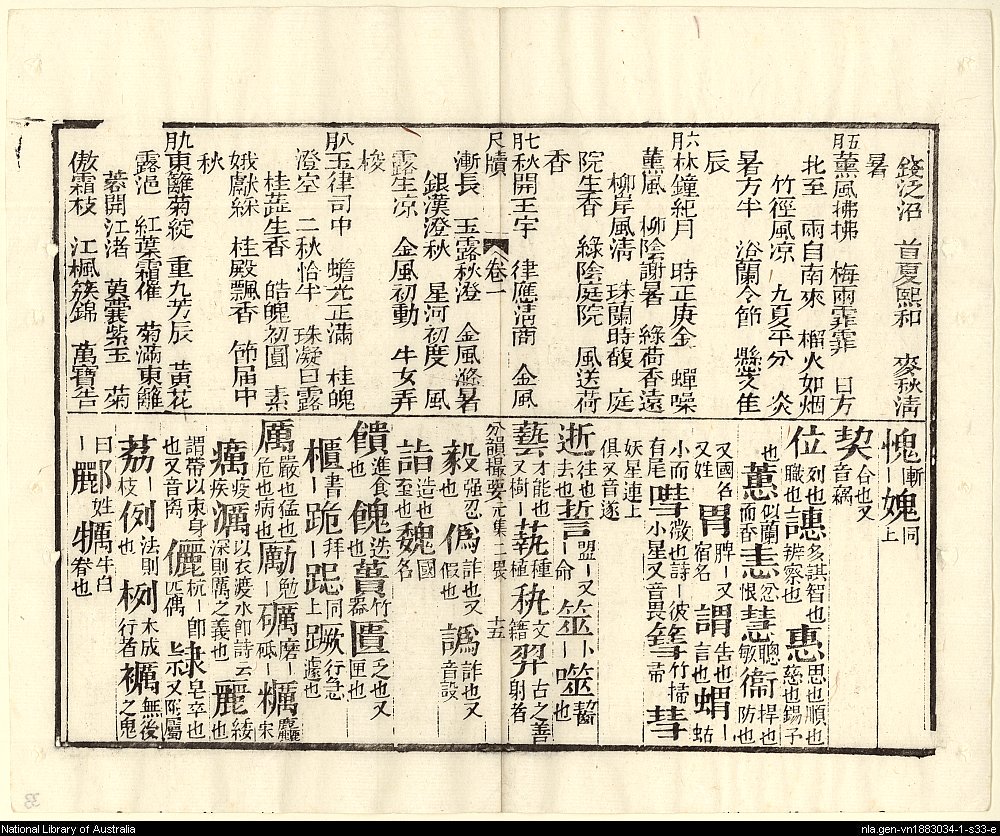 錢泛沼　首夏熙和　麥秋清
暑
五月薰風拂拂　梅雨霏霏　日方
北至　雨自南來　榴火如烟
竹徑風凉　九夏平分　炎
暑方半　浴蘭令節　懸艾佳
辰
六月林鐘紀月　時正庚金　蟬噪
薰嵐　柳陰謝暑　綠荷香遠
柳岸風清　珠蘭時馥　庭
院生香　綠陰庭院　風送荷
香
七月秋開玉宇　律應清商　金風
尺牘　卷一
漸長　玉露秋澄　金風滌暑
銀漢澄秋　星河初度　風
露生凉　金風初動　牛女弄
梭
八月玉律司中　蟾光正滿　桂魄
澄空　二秋怡半　珠凝白露
桂蕋生香　皓魄初圓　素
娥獻綵　桂殿飄香　節届中
秋
九月東籬菊綻　重九芳辰　黃花
露浥　紅葉霜催　菊滿東籬
蓉開江渚　萸囊紫玉　菊
傲霜枝　江楓簇錦　萬寶告
愧慚｜媿同上
契合也又音竊
位列也職也譓多謀智也辨察也惠思也順也慈也鍚予
也蕙似蘭而香恚忿恨慧聰敏衞捍也防也
又國名又姓胃脾｜又宿名謂告也言也蝟｜蛄
小而有尾嘒微也詩｜彼小星又音畏篲竹掃帚彗
妖星連上俱又音遂
逝往也去也誓盟｜又｜命筮卜｜噬齧也
藝才能也又樹｜蓺種植秇文籍羿古之善射者
分韻撮要元集二畏　十五
毅強忍也僞詐也又假也譌詐也又音設
詣造也至也魏國名
饋進食也餽迭蕢竹器匱乏也又匣也
櫃書｜跪拜｜跽同上蹶行急遽也
厲嚴也猛也危也病也勵勉｜砺砥｜礪磨｜糲麤
癘疫疾濿以衣渡水卽詩云深則厲之義也麗綏
謂帶以束身也又音离儷伉｜卽匹偶隷皂卒也又附屬
荔｜枝也例法則｜栵木成行者禲無後之鬼
曰｜酈姓犡牛白脊也
National Library of Australia
nla.gen-vn1883034-1-s33-e